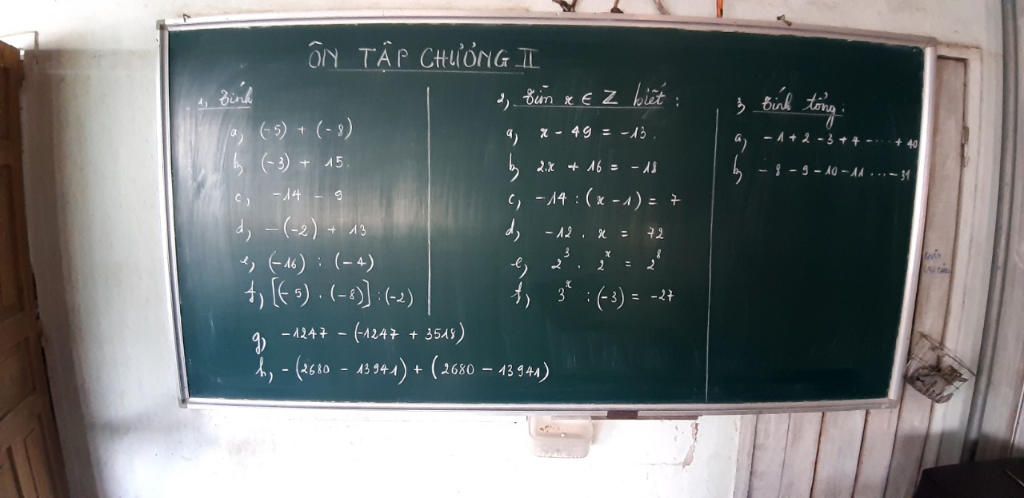 ÔN TẬP CHƯƠNG II
1, Tính
a, (-5) + (-8)
b, (-3) + 15.
c, -14 - 9
d, -(-2) + 13
e, (-16) : (-4)
f, [(-5) . (-8)] : (-2)
g, -1247 - (-1247 + 3518)
h, -(2680 - 13941) + (2680 - 13941)
2, Tìm x ∈ Z biết :
a, x - 49 = -13.
b, 2x + 16 = -18
c, -14 : (x - 1) = 7
d, -12 . x = 72
e, 2³ . 2ˣ = 2⁸
f, 3ˣ : (-3) = -27
3, Tính tổng :
a, -1 + 2 - 3 + 4 - ... + 40
b, -8 - 9 - 10 - 11 ... - 31